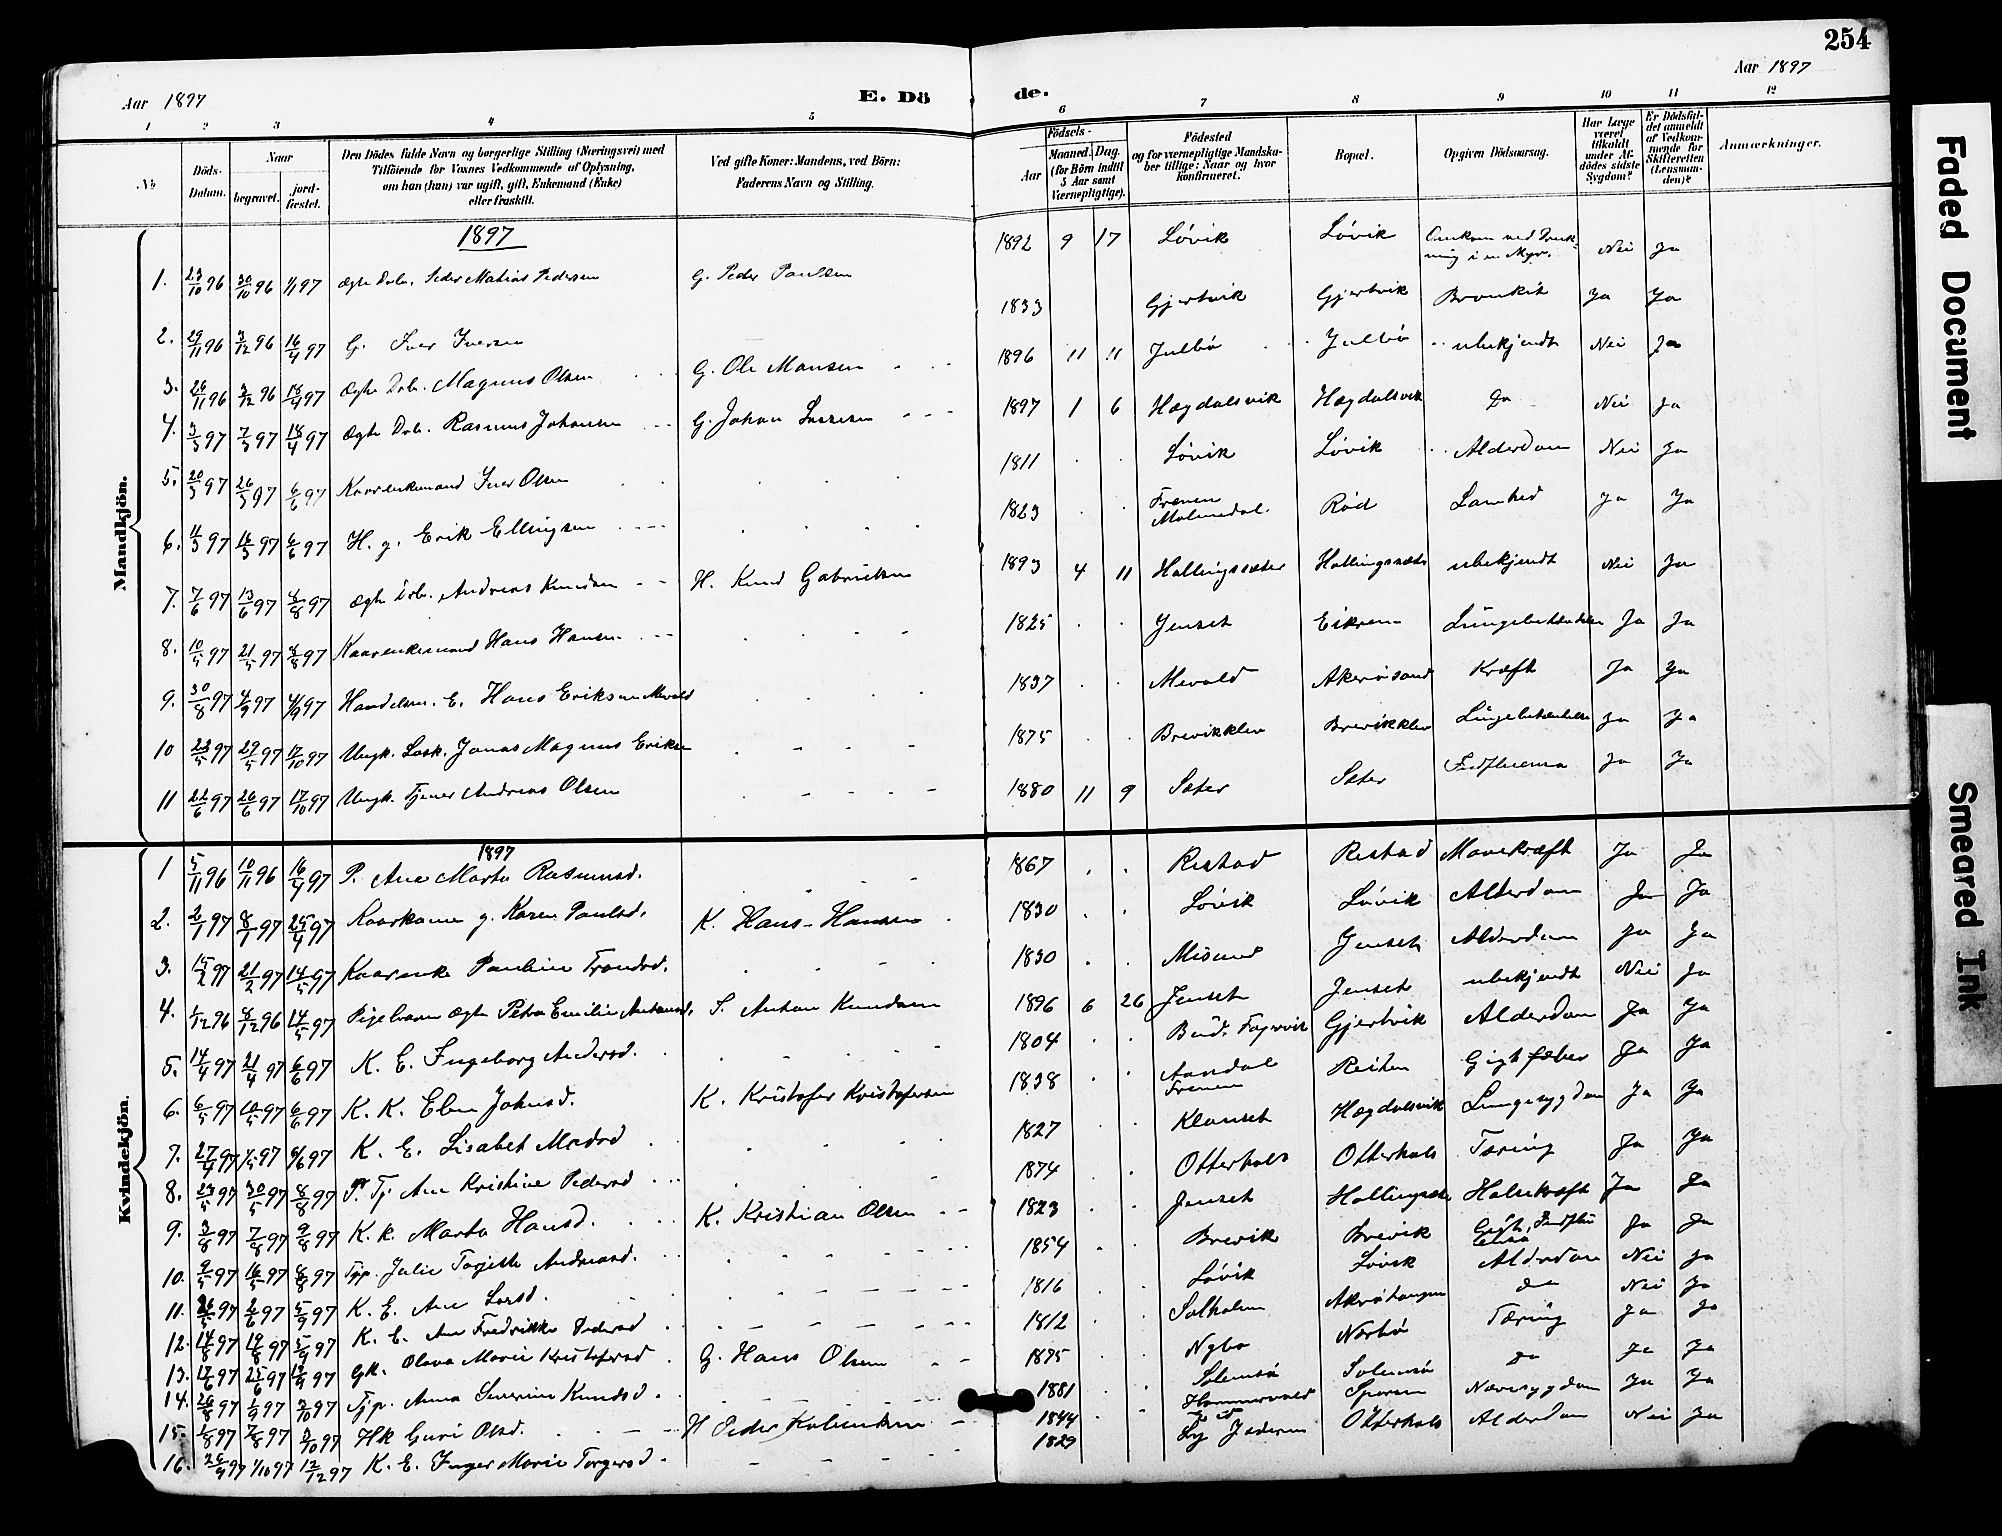 254
Aar 1897
Aar 1897
E. Dö
de.
1 2 3 4 5 6 7 8 9 10 11 12
No
Döds-Datum.
Naar
begravet.
jord-fæstet.
Den Dödes fulde Navn og borgerlige Stilling (Næringsvei) med
Tilföiende for Voxnes Vedkommende af Oplysning,
om han (hun) var ugift, gift, Enkemand (Enke)
eller fraskilt.
Ved gifte Koner: Mandens, ved Börn:
Faderens Navn og Stilling.
Födsels-
Aar
Maaned. Dag.
(for Börn indtil
5 Aar samt
Værnepligtige).
Födested
og for værnepligtige Mandska-
ber tillige: Naar og hvor
konfirmeret.
Bopæl.
Opgiven Dödsaarsag.
Har Læge
været
tilkaldt
under Af-
dödes sidste
Sygdom?
Er Dödsfal-
det anmeldt
af Vedkom-
mende for
Skifteretten
(Lensman-
den)?
Anmærkninger.
Mandkjön.
1897
1. 23/10 96 30/10 96 1/1 97 Ægte Drb. Peder Mathias Pedersen G. Peder Paulsen 1892 9 17 Løvik Løvik Omkom ved Druk-
ning i en Myr. Nei Ja
2. 29/11 96 3/12 96 16/4 97 G. Iver Iversen 1833 Gjertvik Gjertvik Bronkit Ja Ja
3. 26/11 96 3/12 96 18/4 97 Ægte Drb. Magnus Olsen G. Ole Monsen 1896 11 11 Julbø Julbø ubekjendt Nei Ja
4. 3/3 97 7/3 97 18/4 97 Ægte Drb. Rasmus Johansen G. Johan Lassesen 1897 1 6 Hægdalsvik Hægdalsvik Do Nei Ja
5. 20/3 97 26/3 97 6/6 97 Kaarenkemand Iver Olsen 1811 Løvik Løvik Alderdom Nei Ja
6. 11/3 97 16/3 97 6/6 97 H. g. Erik Ellingsen 1823 Frænen
Malmedal. Rød Lamhed Ja Ja
7. 7/6 97 13/6 97 8/8 97 Ægte Drb. Andreas Knudsen H. Knud Gabrielsen 1893 4 11 Hollingssæter Hollingssæter ubekjendt Nei Ja
8. 10/5 97 21/5 97 8/8 97 Kaarenkemand Hans Hansen 1825 Jenset Eikrem Lungebetændelse Ja Ja
9. 30/8 97 4/9 97 4/9 97 Handelsm. E. Hans Eriksen Mevold 1837 Mevold Akerøsund Kræft Ja Ja
10 23/5 97 29/5 97 17/10 97 Ungk. Losk. Jonas Magnus Eriksen 1875 Brevikklev Brevikklev Lungebetændelse Ja Ja
11 22/6 97 26/6 97 17/10 97 Ungk. Tjener Andreas Olsen 1880 11 9 Sæter Sæter Ja Ja
Kvindekjön.
1897
1 5/11 96 10/11 96 16/4 97 P. Ane Marta Rasmusd. 1867 Ristad Ristad Mavekræft Ja Ja
2. 2/1 97 8/1 97 25/4 97 Kaarkone g. Karen Paulsd. K. Hans Hansen 1830 Løvik Løvik Alderdom Ja Ja
3. 15/2 97 21/2 97 14/5 97 Kaarenke Pauline Trondsd. 1830 Misund Jenset Alderdom Ja Ja
4. 1/12 96 8/12 96 14/5 97 Pigebarn Ægte Petra Emilie Antonsd. S. Anton Knudsen 1896 6 26 Jenset Jenset ubekjendt Nei Ja
5. 14/4 97 21/4 97 6/6 97 K. E. Ingeborg Andersd. 1804 Bud. Fagervik Gjertvik Alderdom Ja Ja
6. 6/5 97 10/5 97 6/6 97 K. K. Eben Johnsd. K. Kristofer Kristofersen 1838 Aandal
Frænen Reiten Gigtfeber Ja Ja
7. 27/4 97 1/5 97 6/6 97 K. E. Lisabet Madsd 1827 Klauset Hægdalsvik Lungesygdom Ja Ja
8. 23/5 97 30/5 97 8/8 97 P. Tj Ane Kristine Pedersd 1874 Otterhals Otterhals Tæring Ja Ja
9. 3/8 97 7/8 97 9/8 97 K. k. Marta Hansd. K. Kristian Olsen 1823 Jenset Hollingsæter Halsekræft Ja Ja
10. 9/5 97 16/5 97 8/8 97 Tjp. Julie Tarjette Andreasd. 1854 Brevik Brevik Ja Ja
11. 97 2/6 97 5/9 97 K. E. Ane Larsd. 1816 Løvik Løvik Alderdom Nei Ja
12. 14/8 97 19/8 97 5/9 97 K. E. Ane Fredrikke Pedersd 1812 Solholm Akerøtangen Do Nei Ja
13. 17/6 97 25/6 97 19/9 97 Gk. Olava Marie Kristofersd G. Hans Olsen 1875 Nybø Nerbø Tæring Ja Ja
14. 26/8 97 1/9 97 3/10 97 Tjp. Anna Severine Knudsd. 1881 Solemsø Solemsø Do Ja Ja
15. 1/8 97 7/8 97 3/10 97 Hk Guri Olsd. H Peder Kolbeinsen 1844 Nervesygdom Ja Ja
16. 26/9 97 1/10 97 12/12 97 K. E. Inger Marie Torgersd 1829 Otterhals Alderdom Nei Ja
Faded Document
Smeared Ink